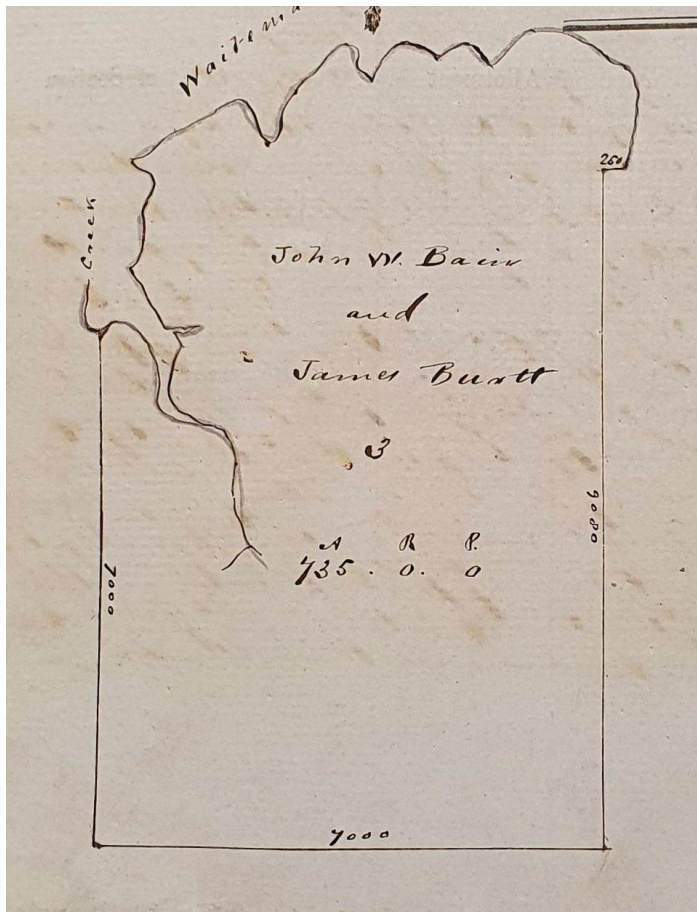 Waitema
250
Creek
John W. Bain
and
James Burtt
3
A R P.
735 . 0 . 0
9080
7000
7000